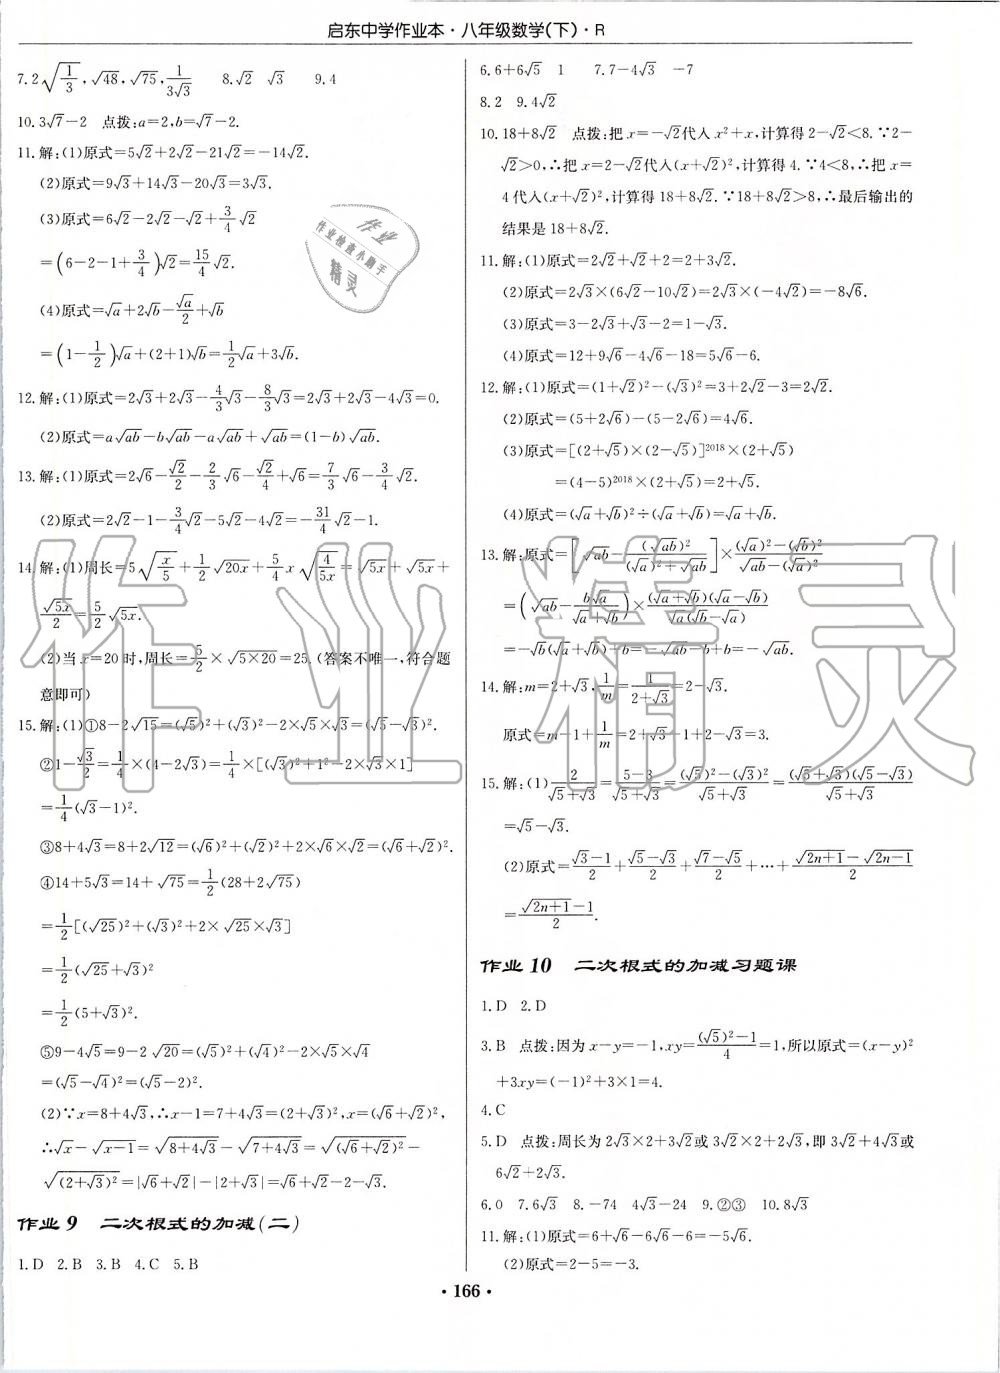 启东中学作业本·八年级数学(下)·R
7.2√(1/3),√48,√75,1/(3√3)  8.√2  √3  9.4
10.3√7-2  点拨:a=2,b=√7-2.
11.解:(1)原式=5√2+2√2-21√2=-14√2.
(2)原式=9√3+14√3-20√3=3√3.
(3)原式=6√2-2√2-√2+(3/4)√2
=(6-2-1+3/4)√2=(15/4)√2.
(4)原式=√a+2√b-√a/2+√b
=(1-1/2)√a+(2+1)√b=(1/2)√a+3√b.
12.解:(1)原式=2√3+2√3-(4/3)√3-(8/3)√3=2√3+2√3-4√3=0.
(2)原式=a√ab-b√ab-a√ab+√ab=(1-b)√ab.
13.解:(1)原式=2√6-√2/2-(2/3)√6-√2/4+√6=(7/3)√6-(3/4)√2.
(2)原式=2√2-1-(3/4)√2-5√2-4√2=-(31/4)√2-1.
14.解:(1)周长=5√(x/5)+(1/2)√(20x)+(5/4)x√(4/(5x))=√(5x)+√(5x)+
√(5x)/2=(5/2)√(5x).
(2)当x=20时,周长=(5/2)×√(5×20)=25.(答案不唯一,符合题
意即可)
15.解:(1)①8-2√15=(√5)²+(√3)²-2×√5×√3=(√5-√3)².
②1-√3/2=(1/4)×(4-2√3)=(1/4)×[(√3)²+1²-2×√3×1]
=(1/4)(√3-1)².
③8+4√3=8+2√12=(√6)²+(√2)²+2×√6×√2=(√6+√2)².
④14+5√3=14+√75=(1/2)(28+2√75)
=(1/2)[(√25)²+(√3)²+2×√25×√3]
=(1/2)(√25+√3)²
=(1/2)(5+√3)².
⑤9-4√5=9-2√20=(√5)²+(√4)²-2×√5×√4
=(√5-√4)²=(√5-2)².
(2)∵x=8+4√3,∴x-1=7+4√3=(2+√3)²,x=(√6+√2)²,
∴√x-√(x-1)=√(8+4√3)-√(7+4√3)=√((√6+√2)²)-
√((2+√3)²)=|√6+√2|-|2+√3|=√6+√2-2-√3.
作业9 二次根式的加减(二)
1.D 2.B 3.B 4.C 5.B
6.6+6√5  1  7.7-4√3  -7
8.2 9.4√2
10.18+8√2  点拨:把x=-√2代入x²+x,计算得2-√2<8.∵2-
√2>0,∴把x=2-√2代入(x+√2)²,计算得4.∵4<8,∴把x=
4代入(x+√2)²,计算得18+8√2.∵18+8√2>8,∴最后输出的
结果是18+8√2.
11.解:(1)原式=2√2+√2+2=2+3√2.
(2)原式=2√3×(6√2-10√2)=2√3×(-4√2)=-8√6.
(3)原式=3-2√3+√3-2=1-√3.
(4)原式=12+9√6-4√6-18=5√6-6.
12.解:(1)原式=(1+√2)²-(√3)²=3+2√2-3=2√2.
(2)原式=(5+2√6)-(5-2√6)=4√6.
(3)原式=[(2+√5)×(2-√5)]²⁰¹⁸×(2+√5)
=(4-5)²⁰¹⁸×(2+√5)=2+√5.
(4)原式=(√a+√b)²÷(√a+√b)=√a+√b.
13.解:原式=[√ab-(√ab)²/((√a)²+√ab)]×((√a)²-(√b)²)/(√ab-(√a)²)
=(√ab-b√a/(√a+√b))×(√a+√b)(√a-√b)/(√a(√b-√a))
=-√b(√a+√b)+b=-√ab-b+b=-√ab.
14.解:m=2+√3,1/m=1/(2+√3)=2-√3.
原式=m-1+1/m=2+√3-1+2-√3=3.
15.解:(1)2/(√5+√3)=(5-3)/(√5+√3)=((√5)²-(√3)²)/(√5+√3)=(√5+√3)(√5-√3)/(√5+√3)
=√5-√3.
(2)原式=(√3-1)/2+(√5-√3)/2+(√7-√5)/2+…+(√(2n+1)-√(2n-1))/2
=(√(2n+1)-1)/2.
作业10 二次根式的加减习题课
1.D 2.D
3.B  点拨:因为x-y=-1,xy=((√5)²-1)/4=1,所以原式=(x-y)²
+3xy=(-1)²+3×1=4.
4.C
5.D  点拨:周长为2√3×2+3√2或3√2×2+2√3,即3√2+4√3或
6√2+2√3.
6.0  7.6√3  8.-74  4√3-24  9.②③  10.8√3
11.解:(1)原式=6+√6-6√6-6=-5√6.
(2)原式=2-5=-3.
·166·
作业
作业检查小助手
精灵
作业精灵